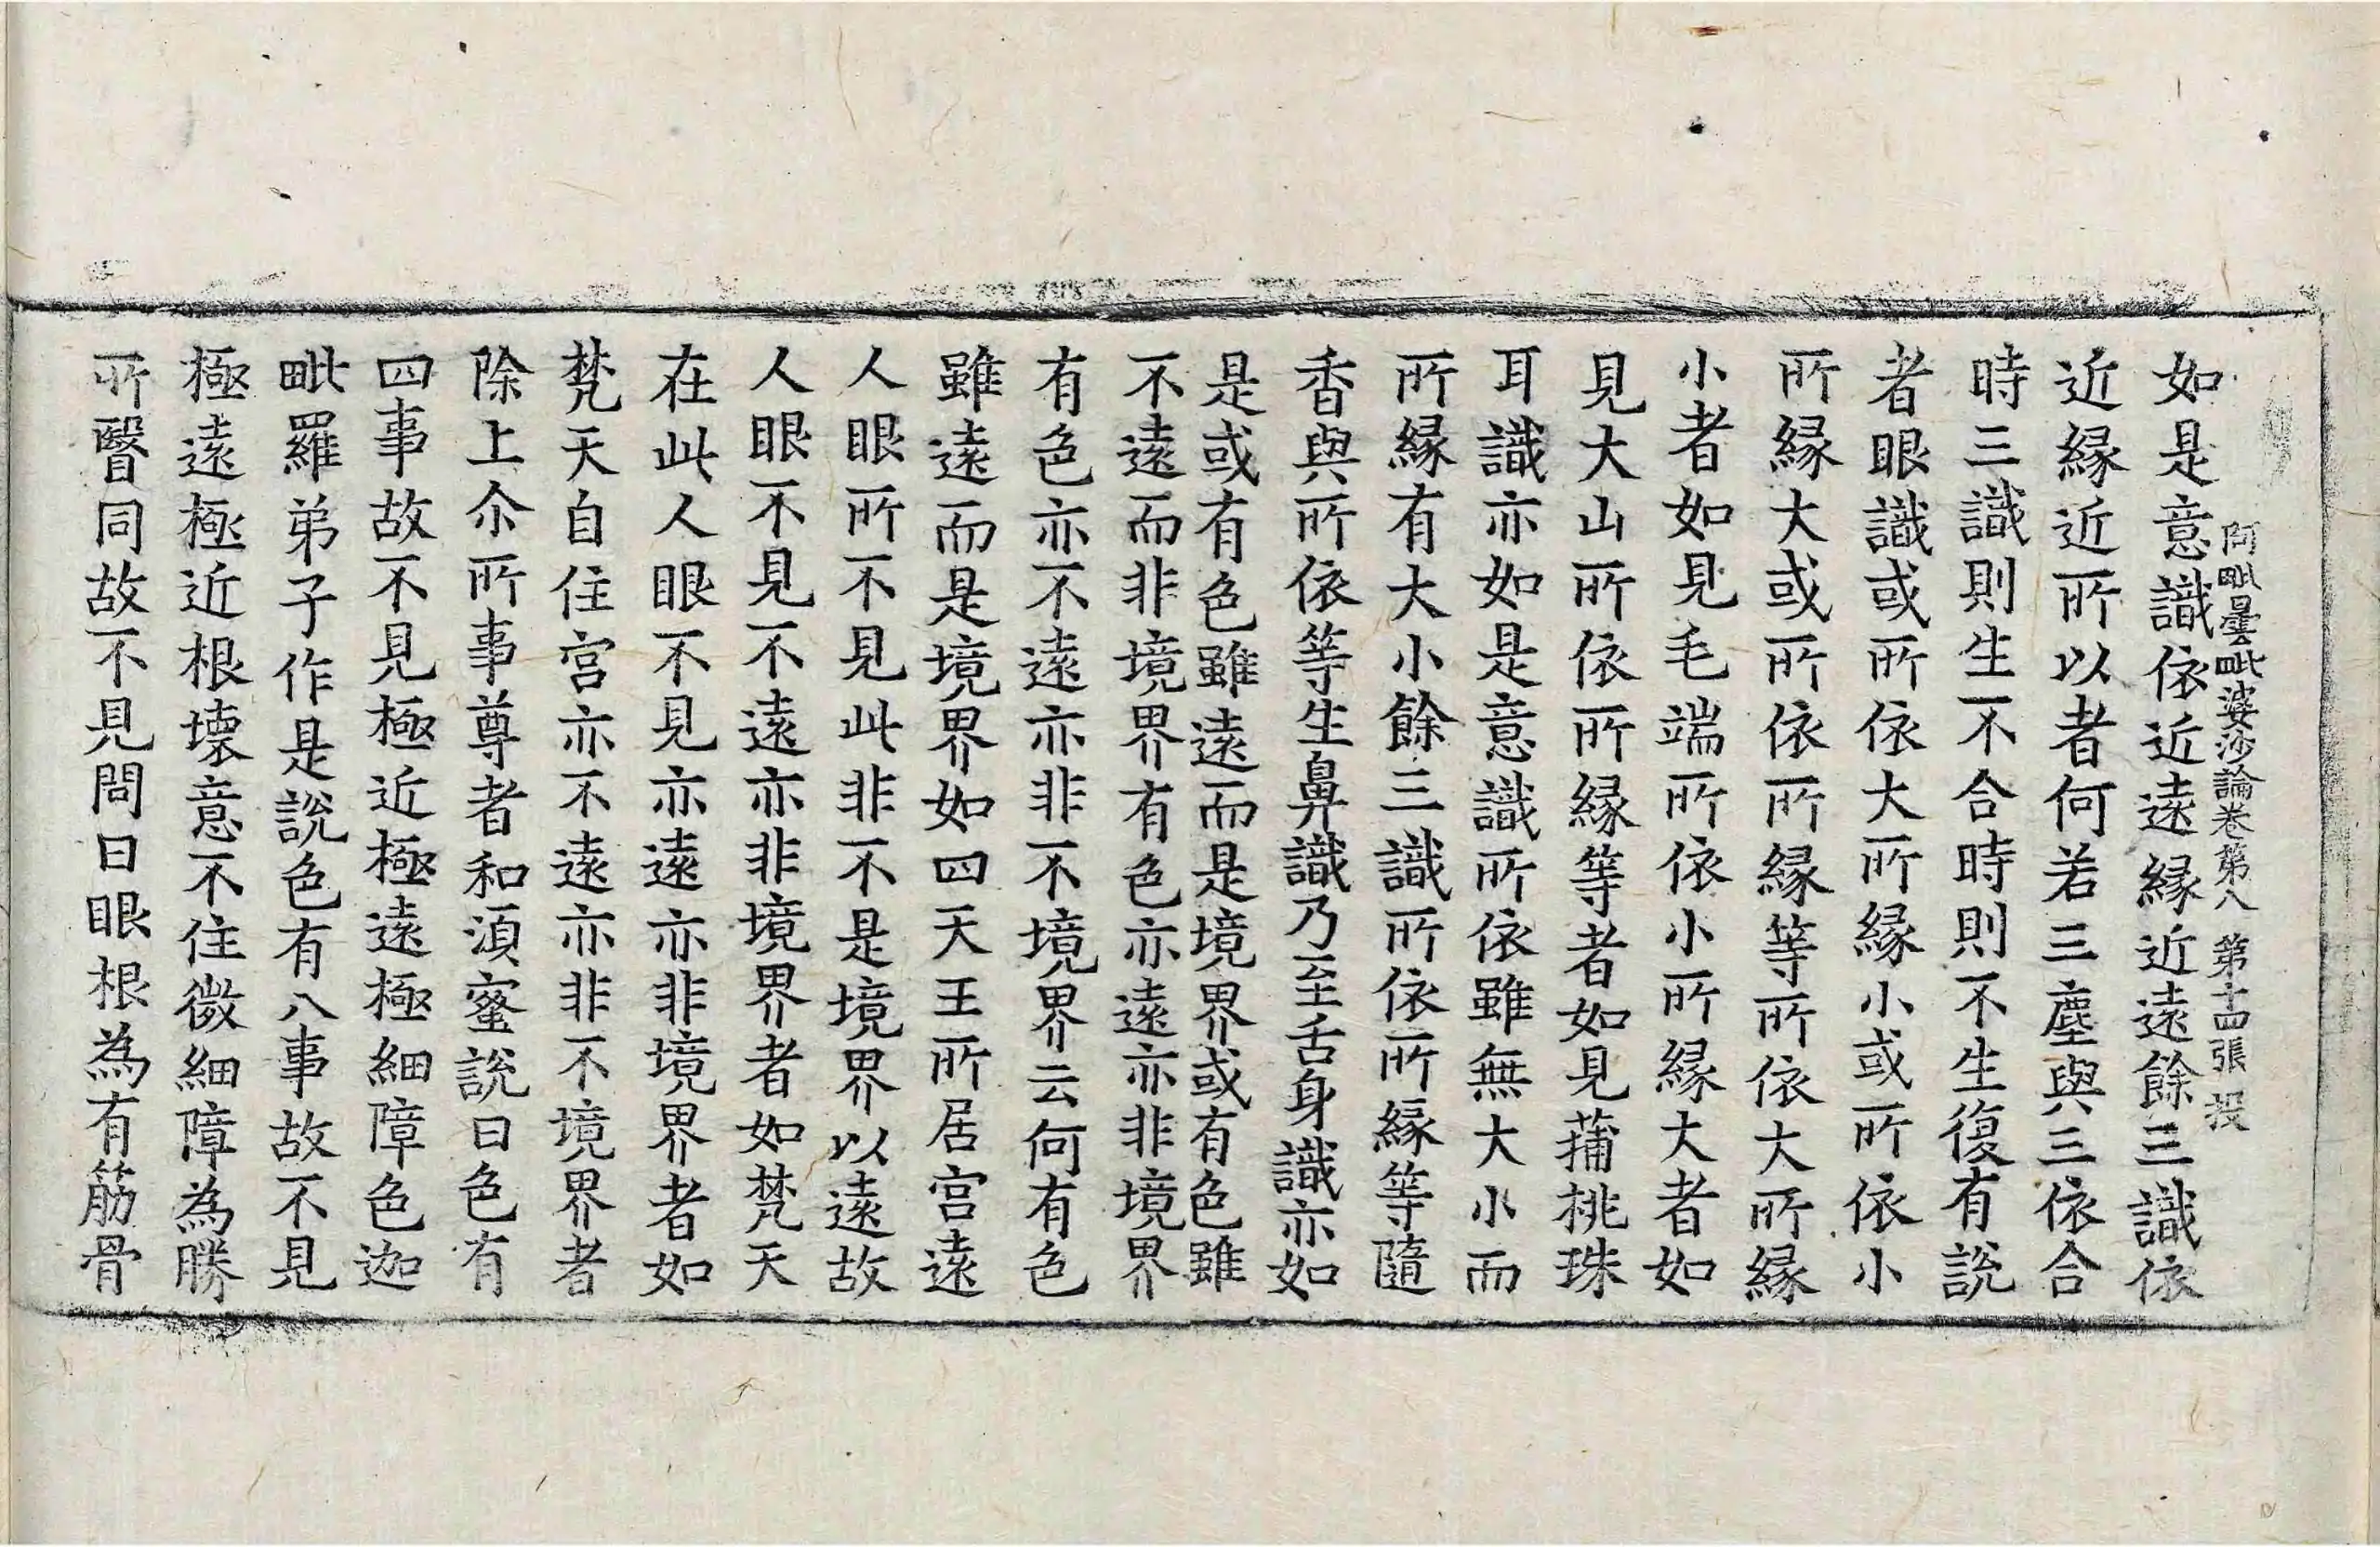 阿毗曇毗婆沙論卷第八 第十四張 投
如是意識依近遠緣近遠餘三識依
近緣近所以者何若三塵與三依合
時三識則生不合時則不生復有說
者眼識或所依大所緣小或所依小
所緣大或所依所緣等所依大所緣
小者如見毛端所依小所緣大者如
見大山所依所緣等者如見蒱桃珠
耳識亦如是意識所依雖無大小而
所緣有大小餘三識所依所緣等隨
香與所依等生鼻識乃至舌身識亦如
是或有色雖遠而是境界或有色雖
不遠而非境界有色亦遠亦非境界
有色亦不遠亦非不境界云何有色
雖遠而是境界如四天王所居宮遠
人眼所不見此非不是境界以遠故
人眼不見不遠亦非境界者如梵天
在此人眼不見亦遠亦非境界者如
梵天自住宮亦不遠亦非不境界者
除上尒所事尊者和須蜜說曰色有
四事故不見極近極遠極細障色迦
毗羅弟子作是說色有八事故不見
極遠極近根壞意不住微細障為勝
所翳同故不見問曰眼根為有筋骨